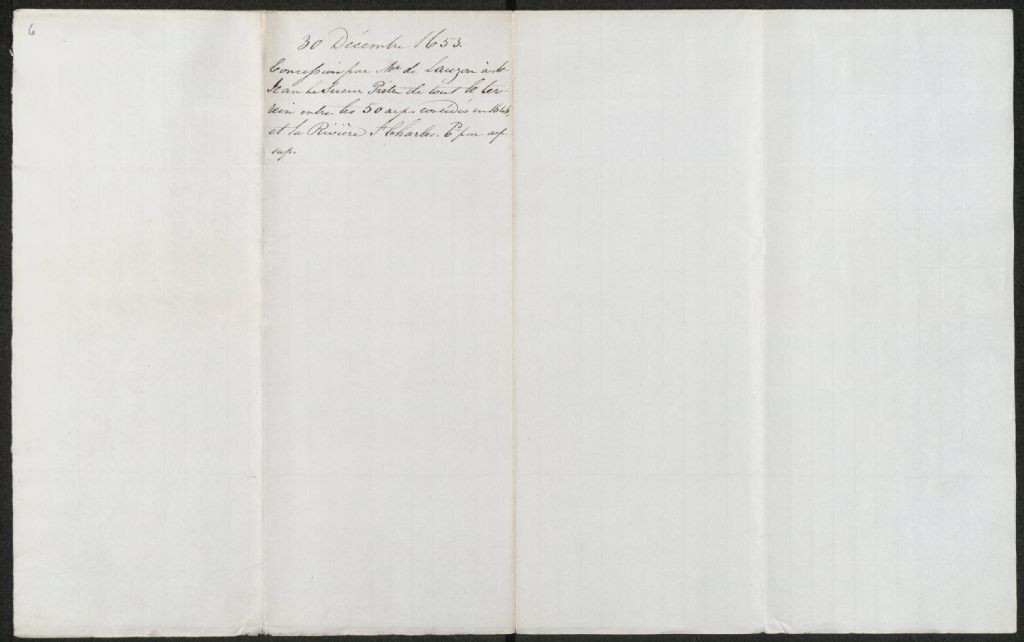 6
30 Décembre 1653.
Concession par Mr de Lauzon à
Jean Le Sueur Prêtre de tout le ter-
rein entre les 50 arp. concédés en
et la Rivière St Charles. par arp
sup.